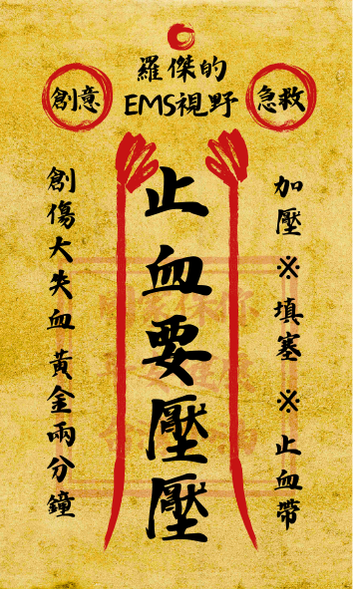 羅傑的
EMS視野
創意
急救
加壓※填塞※止血帶
止血要壓壓
創傷大失血黃金兩分鐘